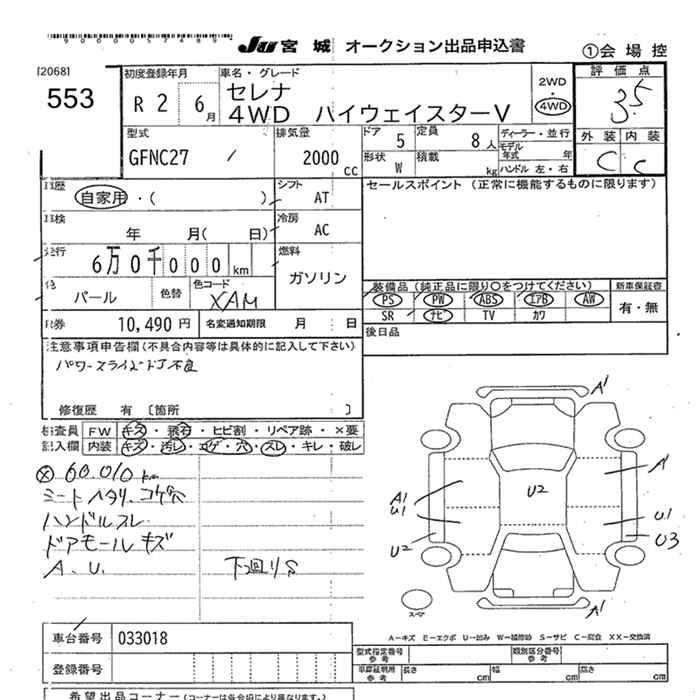 Ju 宮城 オークション出品申込書
①会場控
[2068]
553
初度登録年月 R 2 6月
車名・グレード セレナ
4WD ハイウェイスターV
2WD・4WD
評価点 3.5
型式 GFNC27
排気量 2000 cc
ドア 5 定員 8人
形状 W 積載 kg
ディーラー・並行
モデル年式 年
ハンドル 左・右
外装 内装
C C
歴 自家用・( )
シフト AT
セールスポイント(正常に機能するものに限ります)
検 年 月( 日)
冷房 AC
行 6万0千000km
燃料 ガソリン
パール 色替 色コード XAM
装備品(純正品に限り○をつけてください) 新車保証書
PS PW ABS エアB AW 有・無
SR ナビ TV カワ
券 10,490円 名変通知期限 月 日
後日品
注意事項申告欄(不具合内容等は具体的に記入して下さい)
パワースライドドア不良
修復歴 有 〔箇所 〕
検査員 FW キズ・飛石・ヒビ割・リペア跡・×要
記入欄 内装 キズ・汚レ・コゲ・穴・スレ・キレ・破レ
60,010km
シートヘタリ、コゲ穴
ハンドルスレ
ドアモールキズ
A.U. 下廻りS
A1
A1
U2
A1
U1
U1
U2
U3
A1
スペア
A−キズ E−エクボ U−凹み W−補修跡 S−サビ C−腐食 XX−交換済
車台番号 033018
型式指定番号 参考 類別区分番号 参考
登録番号
車庫証明用 参考 長さ cm 幅 cm 高さ cm
希望出品コーナー(コーナーは各会場により異なります。)